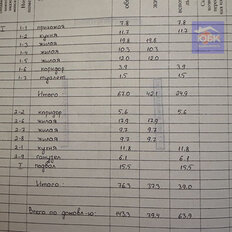 ОБК
I 1-1 прихожая 7.8 7.8
1-2 кухня 11.7 11.7
1-3 жилая 19.8 19.8
1-4 жилая 10.3 10.3
1-5 жилая 12.0 12.0
1-6 коридор 3.9 3.9
1-7 туалет 1.5 1.5
Итого 67.0 42.1 24.9
2-2 коридор 5.6 5.6
2-6 жилая 17.9 17.9
2-7 жилая 9.7 9.7
2-8 жилая 9.7 9.7
2-1 кухня 11.8 11.8
2-9 санузел 6.1 6.1
I подвал 15.5 15.5
Итого 76.3 37.3 39.0
Всего по домовл-ю: 143.3 79.4 63.9